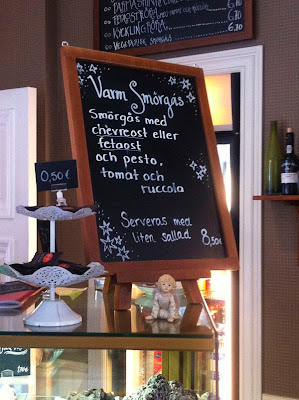 FÄRSKRÖRA
6.70
KYCKLINGRÖRA
6.40
VEGETARISK SMÖRGÅS
Varm Smörgås
Smörgås med
chevreost eller
fetaost
och pesto,
tomat och
ruccola
Serveras med
liten sallad 8,50€
0,50€